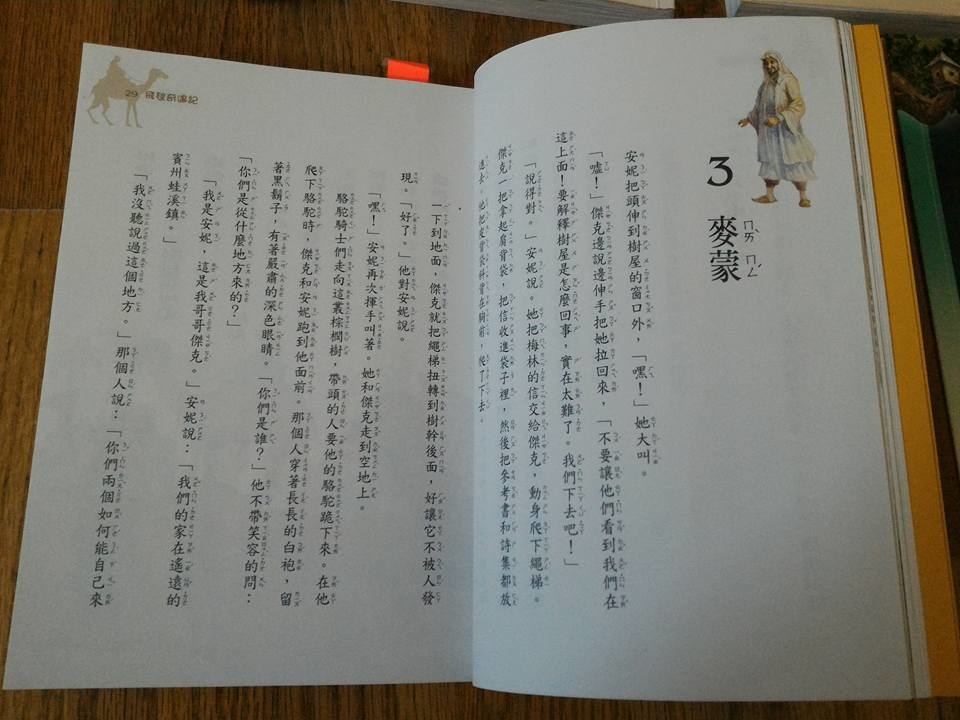 3 麥蒙
ㄇㄞˋ ㄇㄥˊ
安妮把頭伸到樹屋的窗口外,「嘿!」她大叫。
「噓!」傑克邊說邊伸手把她拉回來,「不要讓他們看到我們在
這上面!要解釋樹屋是怎麼回事,實在太難了。我們下去吧!」
「說得對。」安妮說。她把梅林的信交給傑克,動身爬下繩梯。
傑克一把拿起肩背袋,把信收進袋子裡,然後把參考書和詩集都放
進去。他把背袋斜背在胸前,爬了下去。
一下到地面,傑克就把繩梯扭轉到樹幹後面,好讓它不被人發
現。「好了。」他對安妮說。
「嘿!」安妮再次揮手叫著。她和傑克走到空地上。
駱駝騎士們走向這叢棕櫚樹,帶頭的人要他的駱駝跪下來。在他
爬下駱駝時,傑克和安妮跑到他面前。那個人穿著長長的白袍,留
著黑鬍子,有著嚴肅的深色眼睛。「你們是誰?」他不帶笑容的問:
「你們是從什麼地方來的?」
「我是安妮,這是我哥哥傑克。」安妮說:「我們的家在遙遠的
賓州蛙溪鎮。」
「我沒聽說過這個地方。」那個人說:「你們兩個如何能自己來
29 飛毯奇遇記